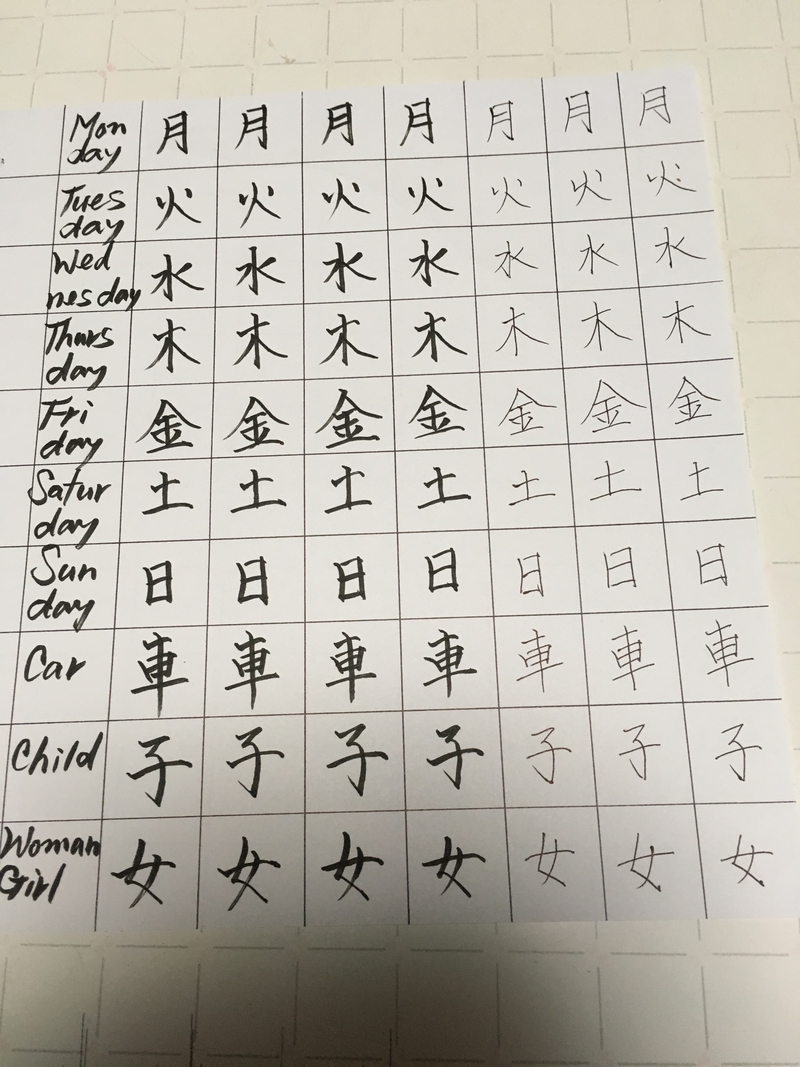 Mon 月 月 月 月 月 月 月
day
Tues 火 火 火 火 火 火 火
day
Wed 水 水 水 水 水 水 水
nesday
Thurs 木 木 木 木 木 木 木
day
Fri 金 金 金 金 金 金 金
day
Satur 土 土 土 土 土 土 土
day
Sun 日 日 日 日 日 日 日
day
Car 車 車 車 車 車 車 車
Child 子 子 子 子 子 子 子
Woman 女 女 女 女 女 女 女
Girl